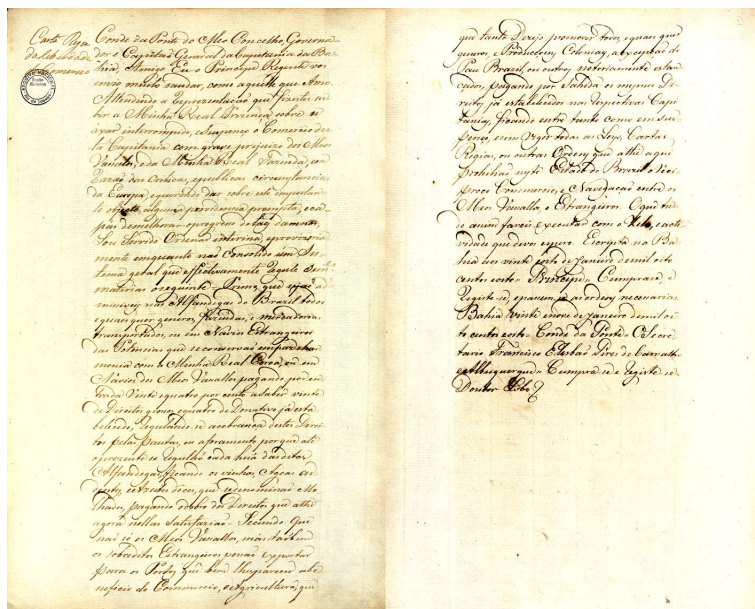 Carta Regia
da Liberdade
do Comercio
Conde da Ponte do Meo Concelho, Governa
dor e Capitaõ General da Capitania da Ba
hia, Amigo. Eu o Principe Regente vos
envio muito saudar, como aquelle que Amo.
Attendendo a Reprezentaçaõ que fizestes su
bir a Minha Real Prezença sobre se
axar interrompido, e suspenço o Comercio des
ta Capitania com grave prejuizo dos Meos
Vassalos, e da Minha Real Fazenda, em
razaõ das criticas, e publicas circumstancias
da Europa, e querendo dar sobre este importan
te objecto alguma providencia prompta, e ca
pas de melhorar o progreço de taes damnos,
Sou Servido Ordenar interina, e provizoria
mente emquanto naõ consolido um Sis
tema geral que effectivamente regule Seme
materias o seguinte - Primo, que sejaõ ad
miciveis nas Alfandegas do Brazil todos
e quaes quer generos, fazendas, e mercadorias
transportados, ou em Navios Estrangeiros
das Potencias que se conservaõ em paz, e har
monia com a Minha Real Coroa, ou em
Navios dos Meos Vassallos, pagando por en
trada Vinte e quatro por cento, a Saber vinte
de Direitos grossos, e quatro de Donativo já esta
belecido, regulando-se a cobrança destes Direi
tos pelas Pautas, ou aforamento porque até
o prezente se regulaõ cada huã das ditas
Alfandegas, ficando os vinhos, Agoas ar
dentes, e Azeites doces, que se denominaõ Mo
lhados, pagando o dobro dos Direitos que athé
agora nellas satisfaziaõ - Secundo Que
naõ só os Meos Vassallos, mas tabem
os sobreditos Estrangeiros possaõ exportar
para os Portos, que bem lhes parecer a be
neficio do Commercio, e Agricultura, que
que tanto Dezejo promover todos, e quaes quer
generos, e Producçoens Coloniaes, a excepçaõ do
Pau Brazil, ou outros notoriamente estan
cados, pagando por Sahida os mesmos Di
reitos já estabelecidos nas respectivas Capi
tanias, ficando entre tanto como em sus
penço, e sem vigor todas as Leis, Cartas
Regias, ou outras Ordens que athé aqui
prohibiaõ neste Estado do Brazil o Reci
proco Commercio, e Navegaçaõ entre os
Meos Vassallos, e Estrangeiros. O que tu
do assim fareis executar com o Zelo, e acte
vidade que devo esperar. Escripta na Ba
hia aos vinte e oito de Janeiro de mil oito
centos e oito - Principe - Cumprase, e
Registe-se, e passem-se as ordens necessarias.
Bahia vinte e nove de Janeiro de mil oi
to centos e oito - Conde da Ponte - O Secre
tario Francisco Elesbaõ Pires de Carvalho
e Albuquerque - Cumpra-se e Registe-se
Doutor Lobo